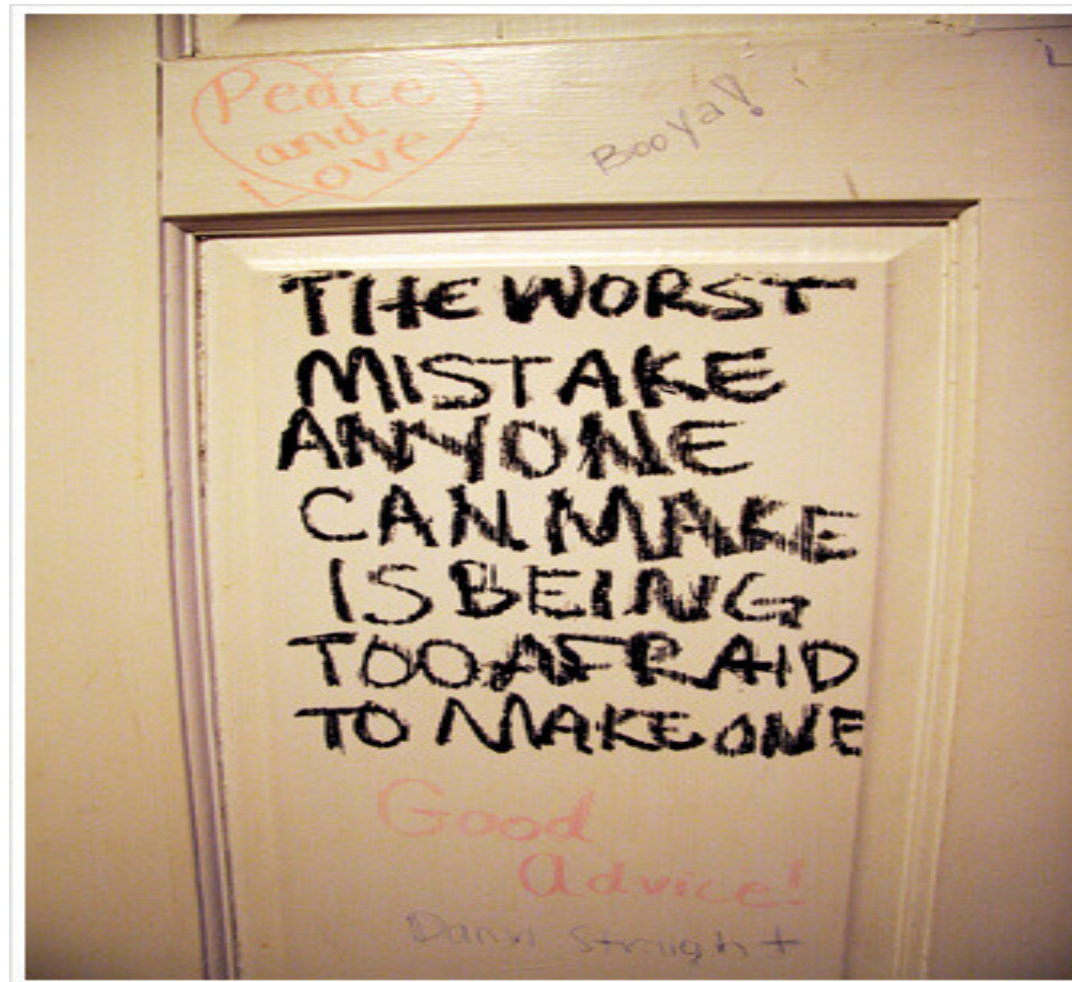 Peace
and
Love
Booya!
THE WORST
MISTAKE
ANYONE
CAN MAKE
IS BEING
TOO AFRAID
TO MAKE ONE
Good
Advice!
Damn straight